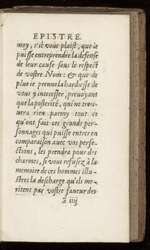 EPISTRE
moy, s'il vous plaist, que ie
puisse entreprendre la defense
de leur cause sous le respect
de vostre Nom: & que de
plus ie prenne la hardiesse de
vous y interesser, preuoyant
que la posterité, qui ne trou-
uera rien parmy tout ce
qu'ont fait ces grands per-
sonnages qui puisse entrer en
comparaison auec vos perfe-
ctions, les prendra pour des
charmes, si vous refusez à la
memoire de ces hommes illu-
stres la descharge qu'ils me-
ritent par vostre faueur des
à iiij